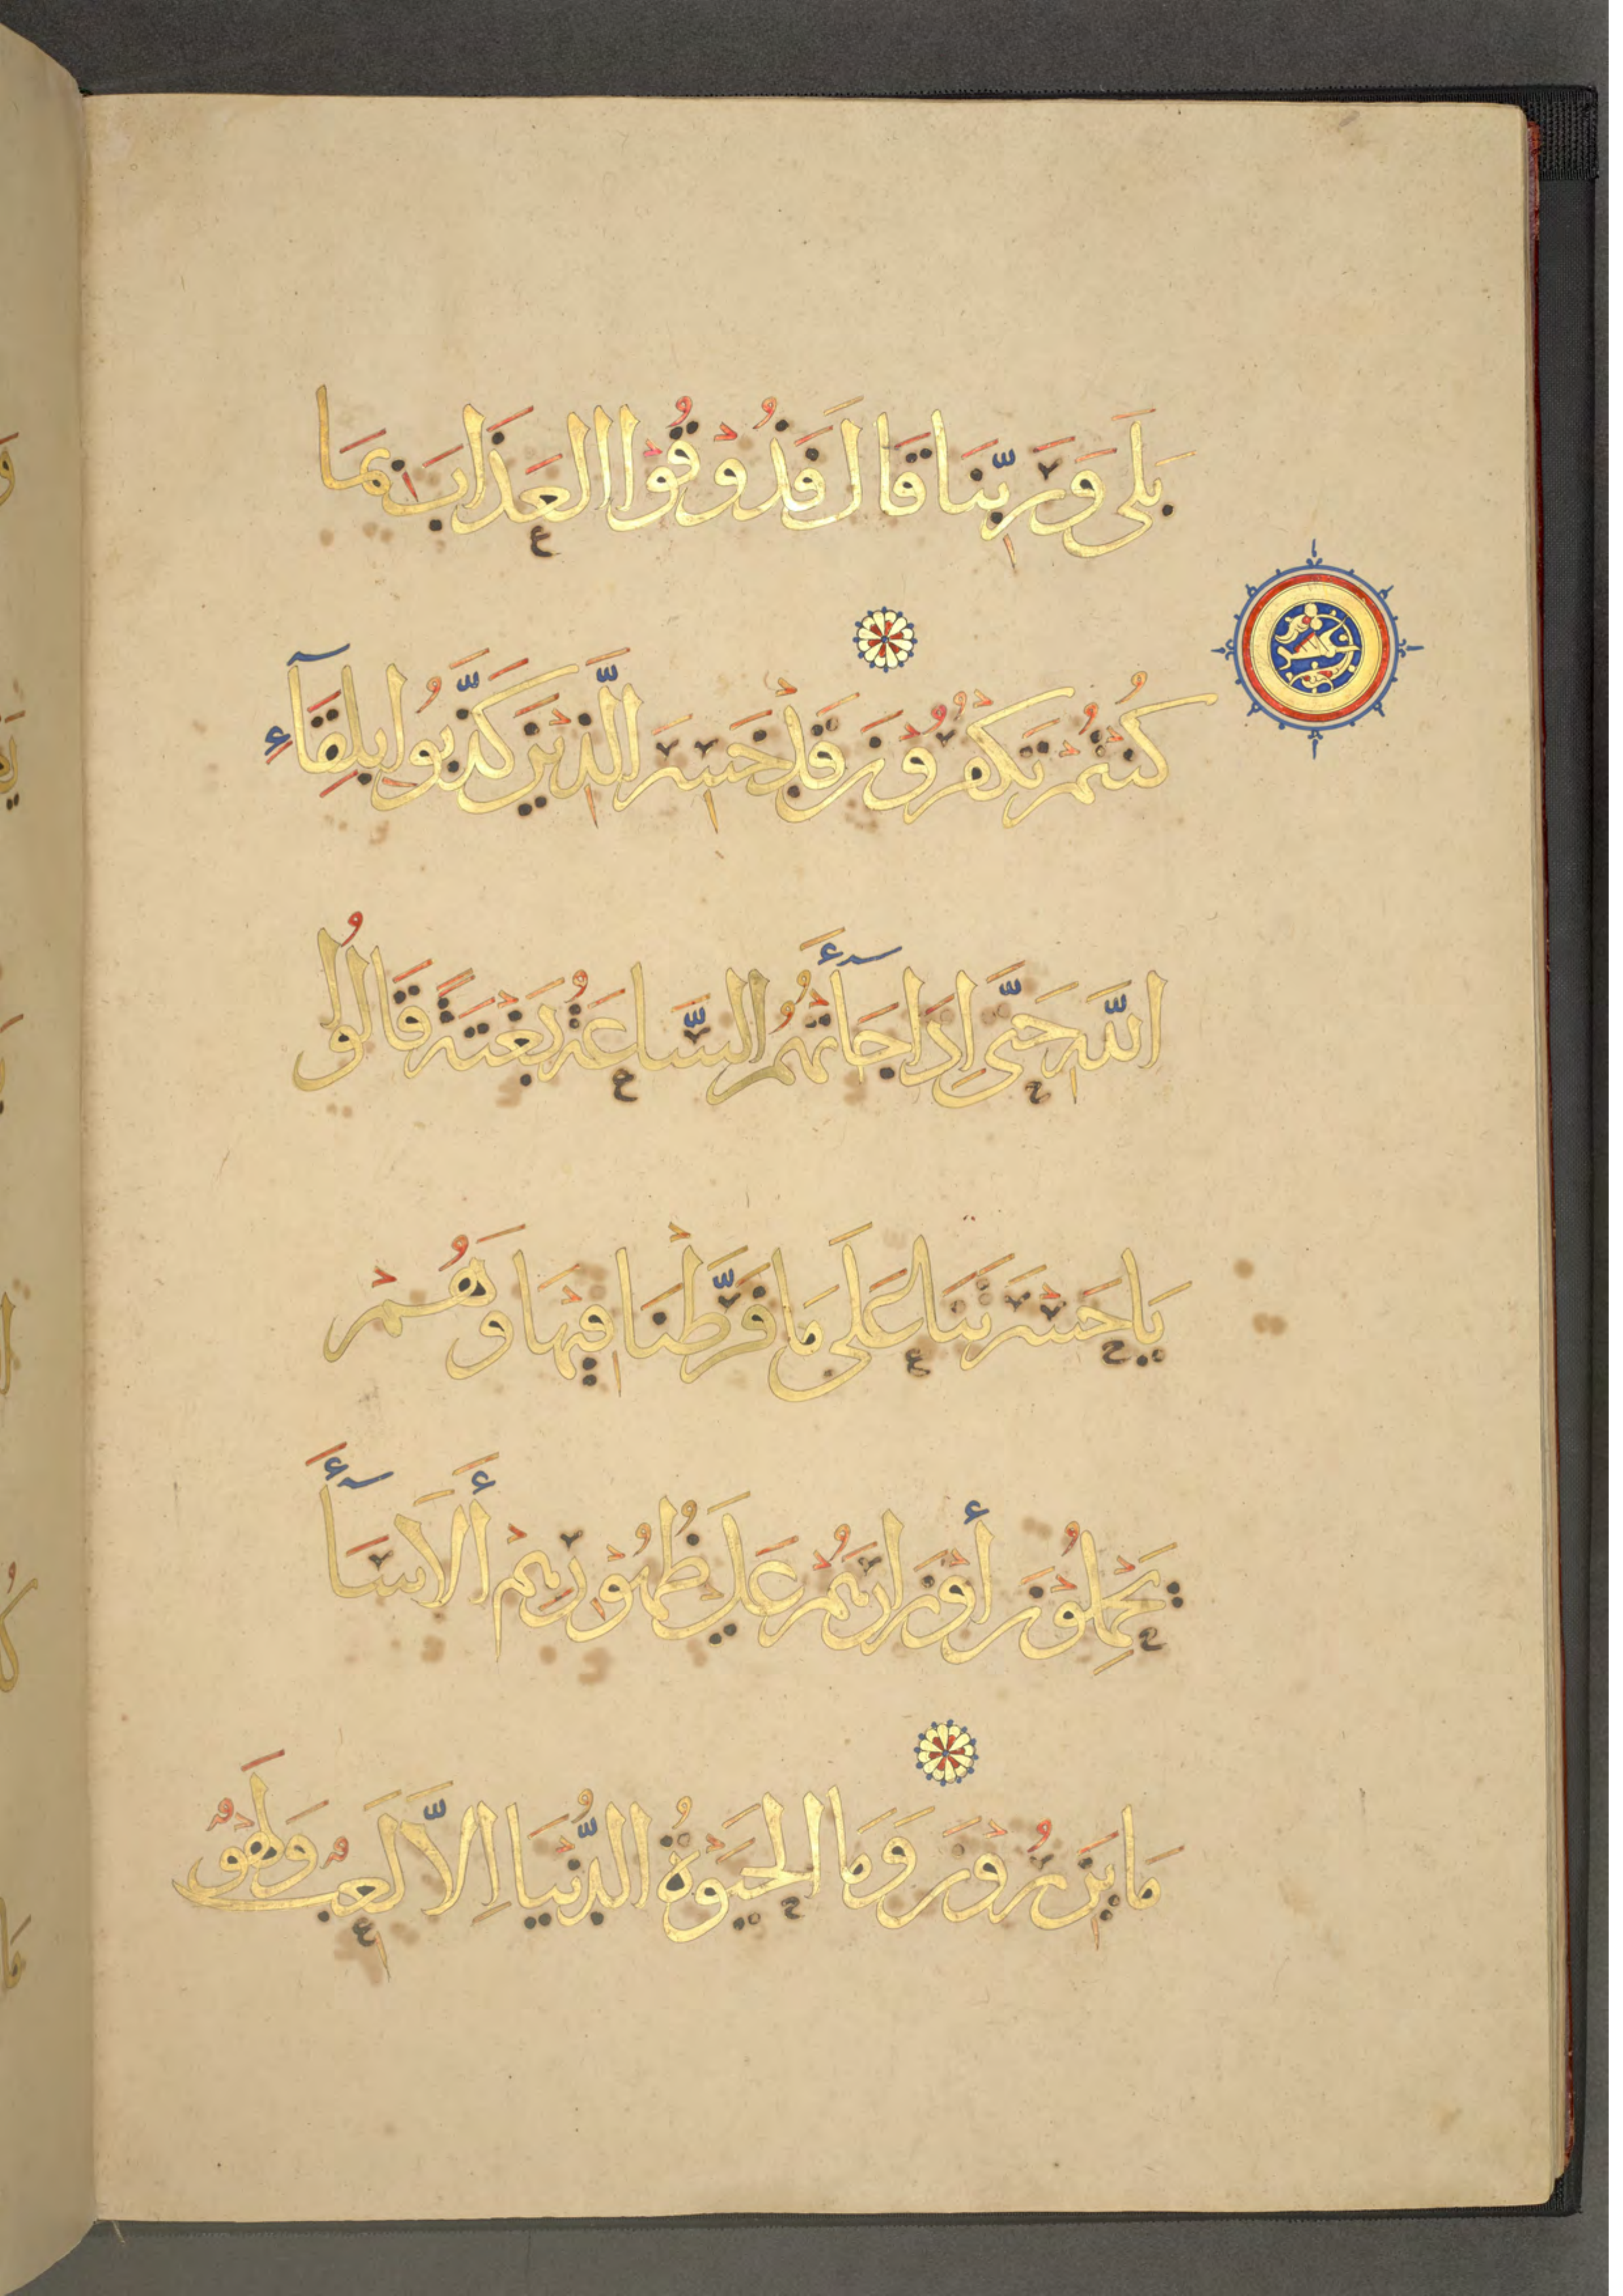 بَلَى وَرَبِّنَا قَالَ فَذُوْقُوْا العَذَابَ بِمَا
كُنْتُمْ تَكْفُرُوْنَ قَدْ خَسِرَ الَّذِيْنَ كَذَّبُوا بِلِقَآءِ
اللَّهِ حَتَّى اِذَا جَآءَتْهُمُ السَّاعَةُ بَغْتَةً قَالُوا
يَا حَسْرَتَنَا عَلَى مَا فَرَّطْنَا فِيْهَا وَهُمْ
يَحْمِلُوْنَ أَوْزَارَهُمْ عَلَى ظُهُوْرِهِمْ أَلَا سَآءَ
مَا يَزِرُوْنَ وَمَا الحَيَوةُ الدُّنْيَا اِلَّا لَعِبٌ وَلَهْوٌ